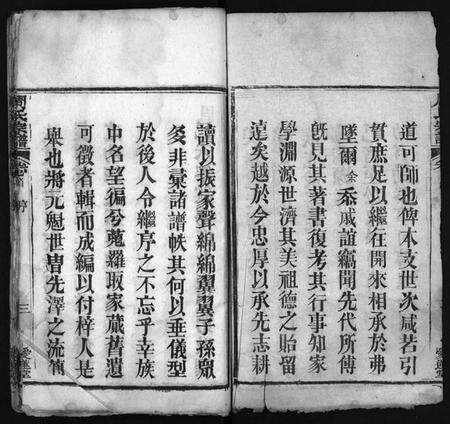 道可師也俾本支世次咸若引
貫庶足以繼往開來相承於弗
墜爾余忝戚誼竊聞先代所傳
旣見其著書復考其行事知家
學淵源世濟其美祖德之貽留
遠矣越於今忠厚以承先志耕
讀以振家聲綿綿翼翼子孫眾
多非彙諸譜帙其何以垂儀型
於後人令繼序之不忘乎幸族
中名望徧兮蒐羅取家藏舊遺
可徵者輯而成編以付梓人是
舉也將元魁世皆先澤之流
周氏宗譜
序
三
愛蓮堂